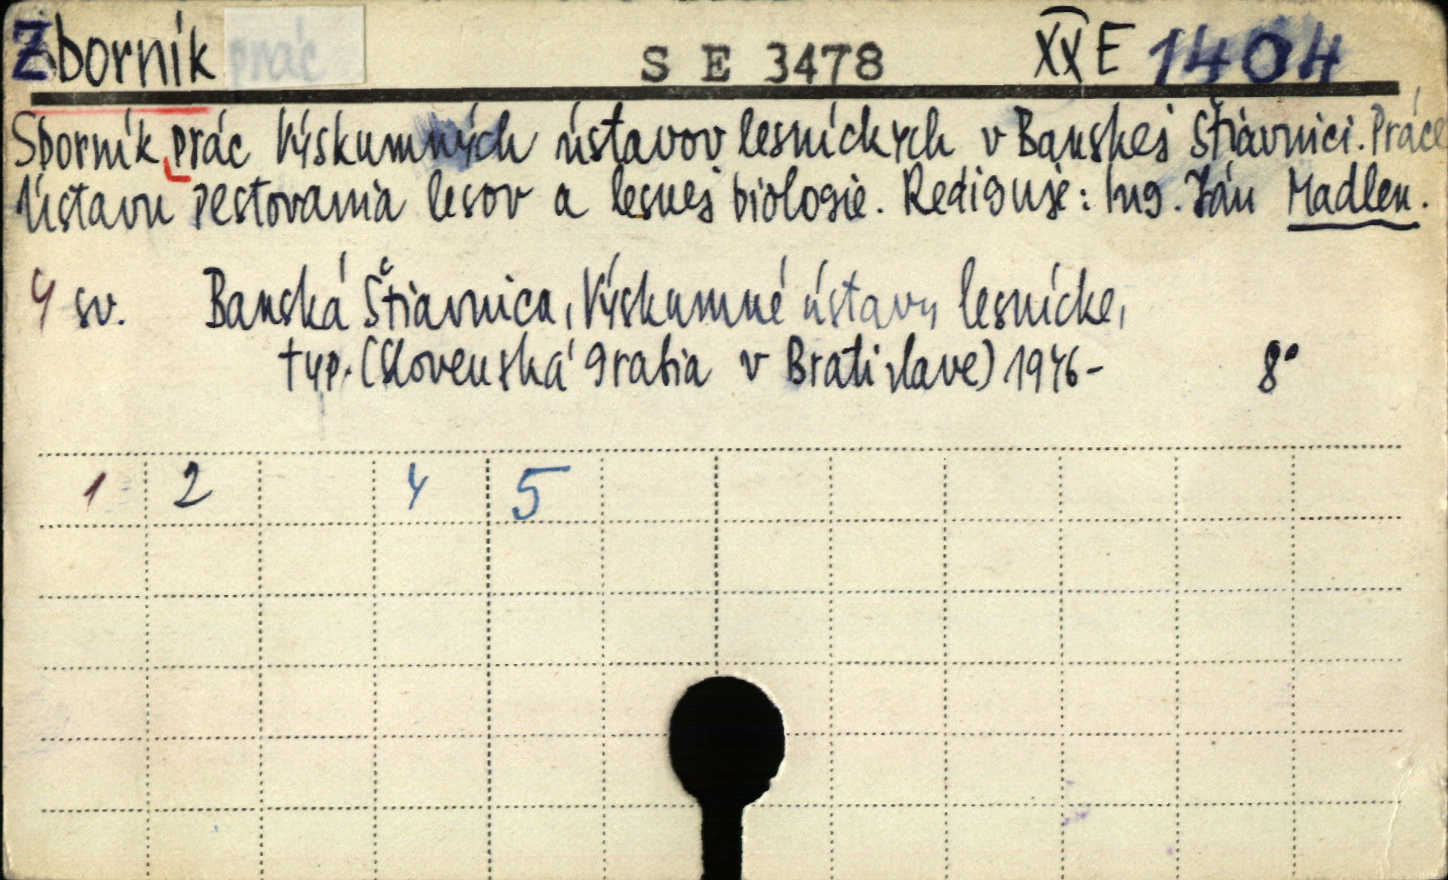 Zborník prác S E 3478 XX E 1404
Sborník prác Výskumných ústavov lesníckych v Banskej Štiavnici. Práce
Ústavu pestovania lesov a lesnej biologie. Rediguje: Ing. Ján Madlen.
4 sv. Banská Štiavnica, Výskumné ústavy lesnícke,
typ. (Slovenská grafia v Bratislave) 1946- 8°
1 2 4 5